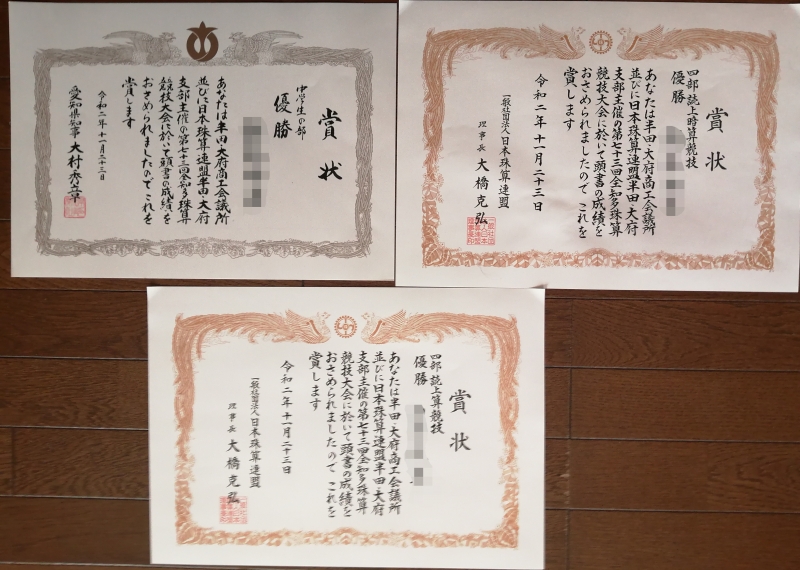 賞状
中学生の部
優勝
あなたは半田・大府商工会議所
並びに日本珠算連盟半田・大府
支部主催の第七十三回全知多珠算
競技大会に於いて頭書の成績を
おさめられましたので これを
賞します
令和二年十一月二十三日
愛知県知事 大村秀章
賞状
四部 読上暗算競技
優勝
あなたは半田・大府商工会議所
並びに日本珠算連盟半田・大府
支部主催の第七十三回全知多珠算
競技大会に於いて頭書の成績を
おさめられましたので これを
賞します
令和二年 十一月 二十三日
一般社団法人 日本珠算連盟
理事長 大橋克弘
賞状
四部 読上算競技
優勝
あなたは半田・大府商工会議所
並びに日本珠算連盟半田・大府
支部主催の第七十三回全知多珠算
競技大会に於いて頭書の成績を
おさめられましたので これを
賞します
令和二年 十一月 二十三日
一般社団法人 日本珠算連盟
理事長 大橋克弘